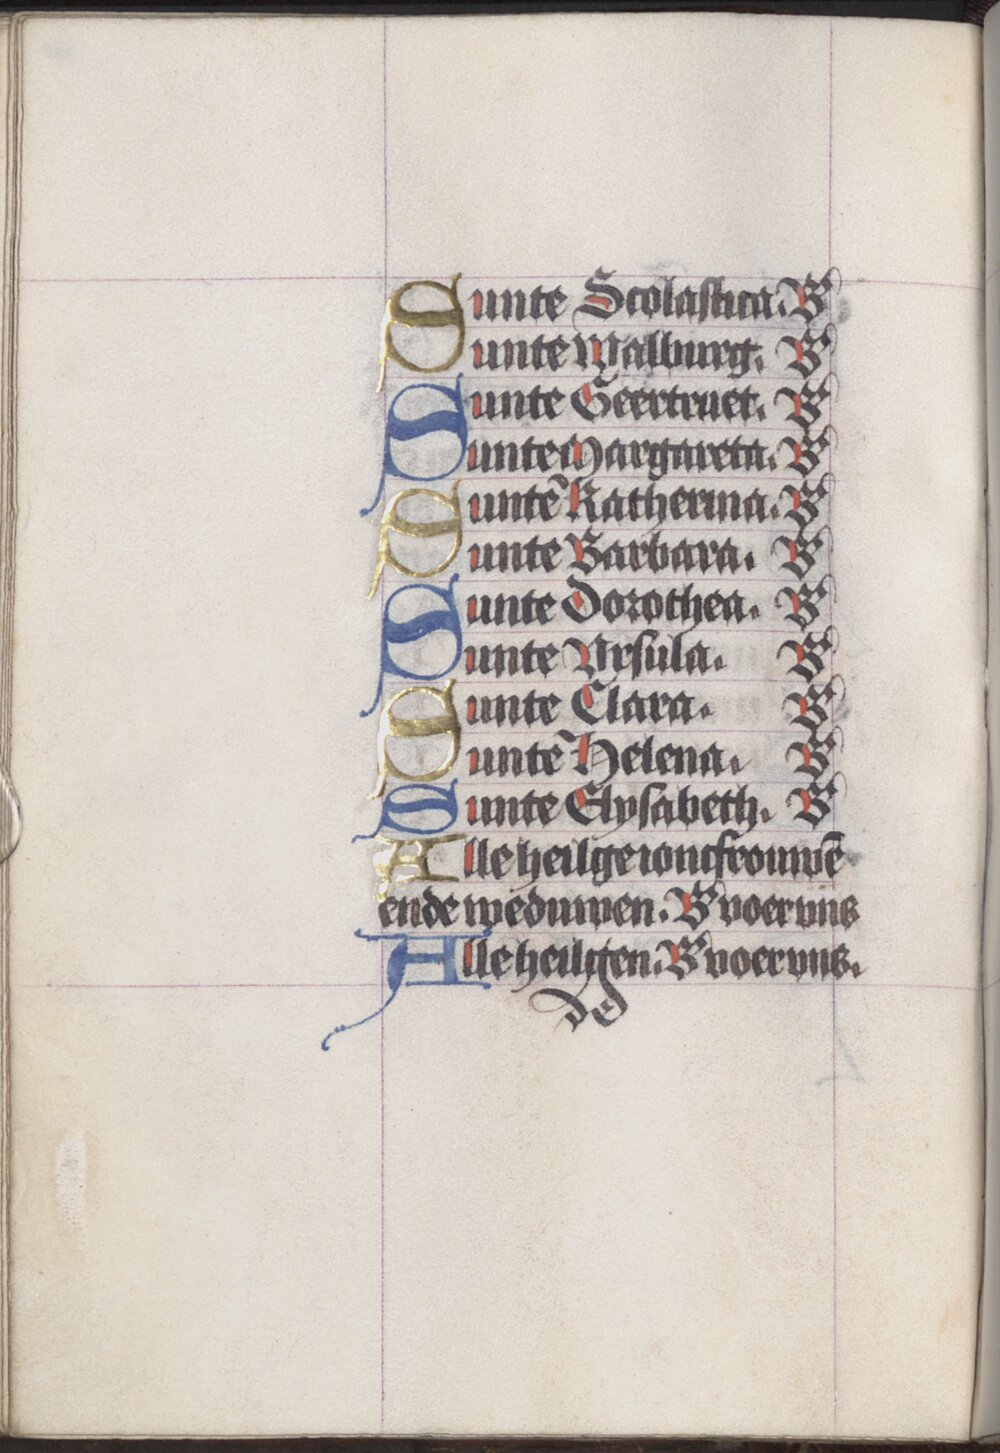 Sunte Scolastica. B
Sunte Walburg. B
Sunte Geertruet. B
Sunte Margareta. B
Sunte Katherina. B
Sunte Barbara. B
Sunte Dorothea. B
Sunte Vrsula. B
Sunte Clara. B
Sunte Helena. B
Sunte Elysabeth. B
Alle heilge ioncfrouwē
ende weduwen. B voer vns
Alle heiligen. B voer vns.